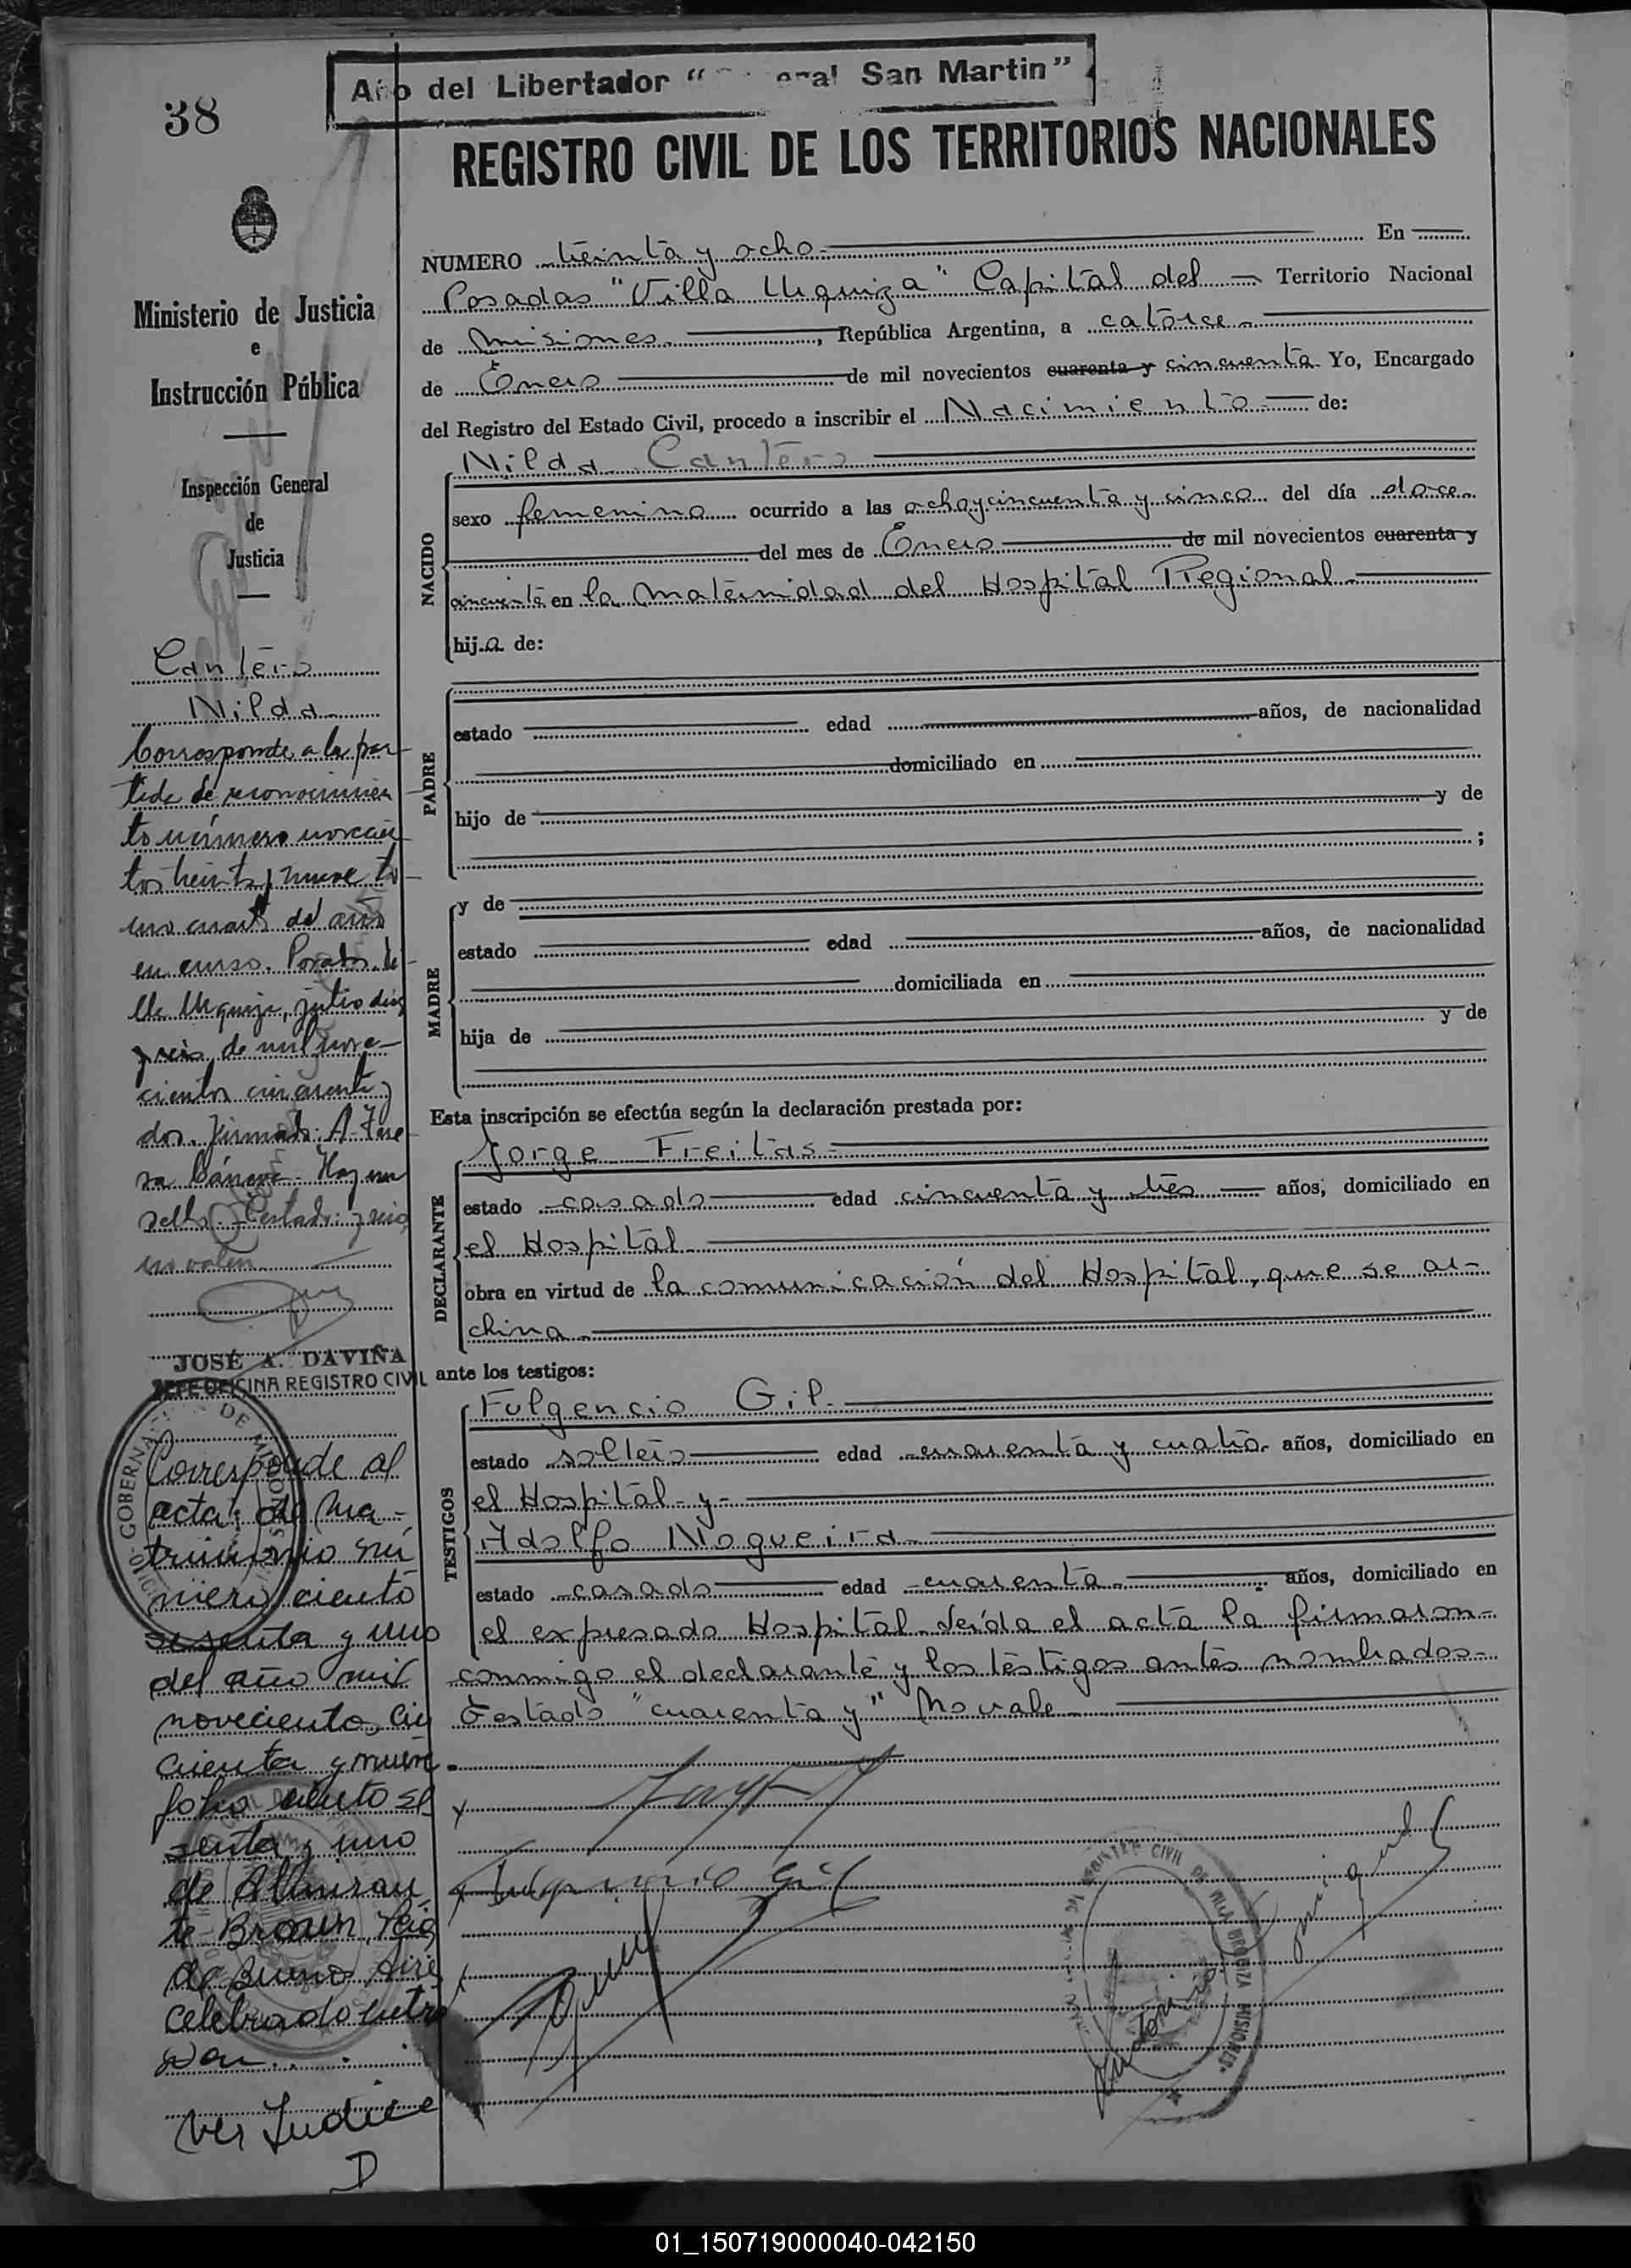 Año del Libertador "General San Martin"
38
REGISTRO CIVIL DE LOS TERRITORIOS NACIONALES
NUMERO treinta y ocho En
Posadas "Villa Urquiza" Capital del Territorio Nacional
de Misiones, República Argentina, a catorce
de Enero de mil novecientos cuarenta y cincuenta Yo, Encargado
del Registro del Estado Civil, procedo a inscribir el Nacimiento de:
Nilda Cantero
NACIDO
sexo femenino ocurrido a las ocho y cincuenta y cinco del día doce
del mes de Enero de mil novecientos cuarenta y
cincuenta en la Maternidad del Hospital Regional
hija de:
PADRE
estado edad años, de nacionalidad
domiciliado en
hijo de y de
;
MADRE
y de
estado edad años, de nacionalidad
domiciliada en
hija de y de
Esta inscripción se efectúa según la declaración prestada por:
DECLARANTE
Jorge Freitas
estado casado edad cincuenta y tres años, domiciliado en
el Hospital
obra en virtud de la comunicación del Hospital, que se ar-
chiva
ante los testigos:
TESTIGOS
Fulgencio Gil
estado soltero edad cuarenta y cuatro años, domiciliado en
el Hospital y
Adolfo Nogueira
estado casado edad cuarenta años, domiciliado en
el expresado Hospital. Leída el acta la firmaron
conmigo el declarante y los testigos antes nombrados-
Testado "cuarenta y" No vale
Fulgencio Gil
Ministerio de Justicia
e
Instrucción Pública
Inspección General
de
Justicia
Cantero
Nilda
Corresponde a la par
tida de reconocimien
to número novecien
tos treinta y nueve to
mo cuarto del año
en curso. Posadas, Vi
lla Urquiza, julio diez
y seis de mil nove-
cientos cincuenta y
dos. Firmado: A.
Hay un
sello. Testado: y seis
no valen
JOSÉ A. DAVIÑA
JEFE OFICINA REGISTRO CIVIL
GOBERNA DE MISIONES
Corresponde al
acta de Ma-
trimonio nú
mero ciento
sesenta y uno
del año mil
novecientos cin
cuenta y nueve
folio ciento se
senta y uno
de Almiran
te Brown, Pcia
de Buenos Aires
celebrado entre
Don
Ver Indice
D
REGISTRO CIVIL DE VILLA URQUIZA MISIONES
01_150719000040-042150